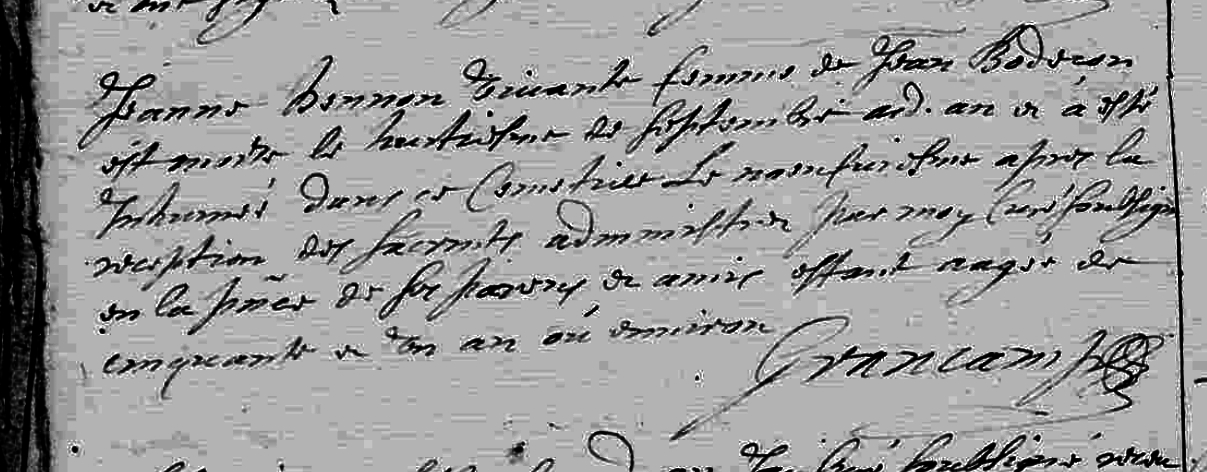 Jeanne Bonnon vivante femme de Jean Boderon
est morte le huitiesme de septembre aud. an et à esté
Inhumeé dans ce Cemetiere Le neufuiesme apres la
reception des sacremts administrer par moy Curé soubsigné
en la pñce de ses parens et amis estant aageé de
cinquante et un an où environ
Grancamp